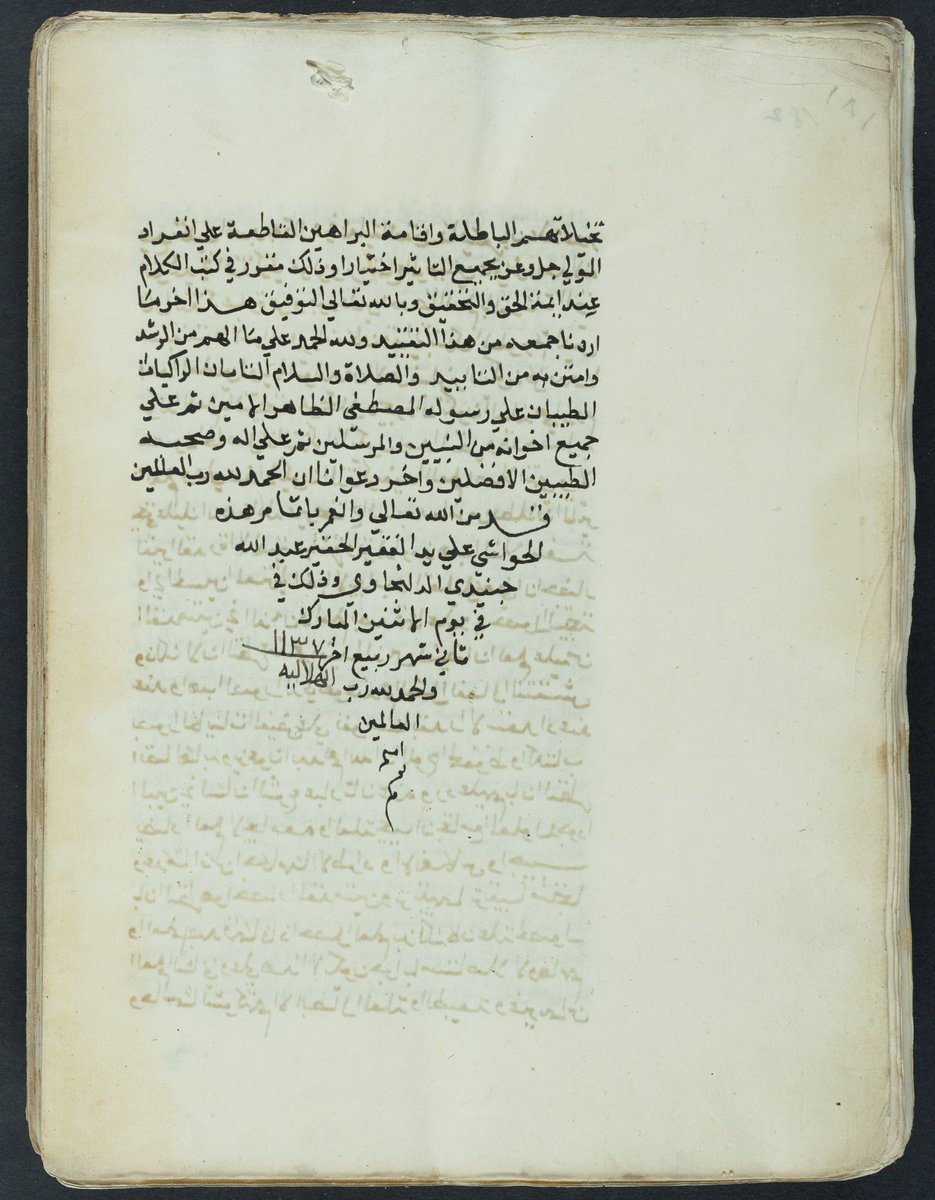 تخيلاتهم الباطلة واقامة البراهين القاطعة علي انفراد
المولي جل وعز بجميع التاثير اختيارا وذلك مقرر في كتب الكلام
عند ايمة الحق والتحقيق وبالله تعالي التوفيق هذا اخر ما
اردنا جمعه من هذا التقييد ولله الحمد علي ما الهم من الرشد
وامتن به من التاييد والصلاة والسلام التامان الزاكيان
الطيبان علي رسوله المصطفي الطاهر الامين ثم علي
جميع اخوانه من النبيين والمرسلين ثم علي اله وصحبه
الطيبين الافضلين واخر دعوانا ان الحمد لله رب العالمين
وقد من الله تعالي وانعم باتمام هذه
الحواشي علي يد الفقير الحقير عبد الله
جنيدي وذلك في
في يوم الاثنين المبارك
ثاني شهر ربيع اخر ١١٣٧
والحمد لله رب
العالمين
امين
م